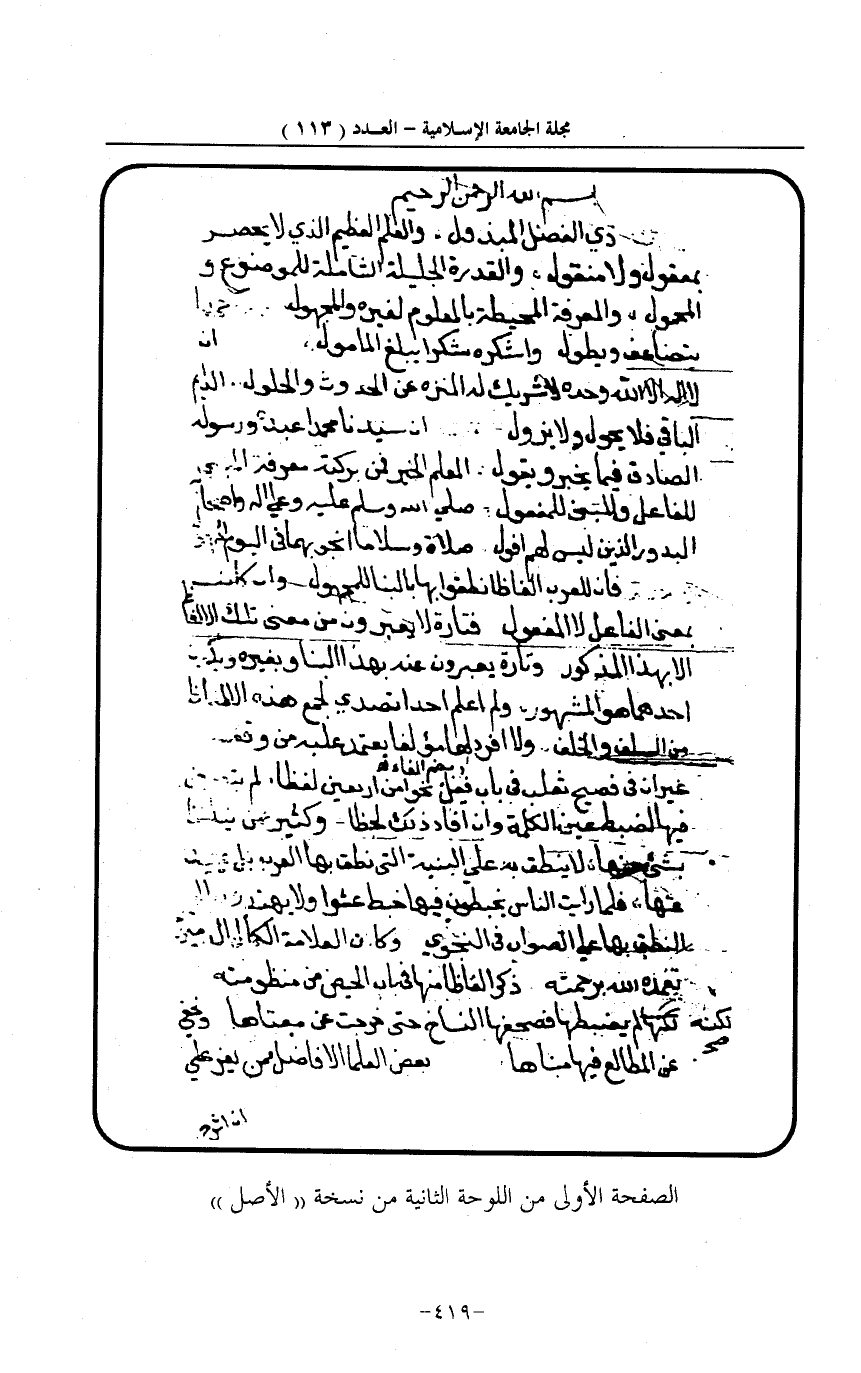 مجلة الجامعة الإسلامية – العـدد ( ١١٣ )
بسم الله الرحمن الرحيم
ذي الفضل المبذول، والعلم العظيم الذي لا يحصر
بمعقول ولا منقول، والقدرة الجليلة الشاملة للموضوع و
المحمول، والمعرفة المحيطة بالمعلوم لغيره والمجهول
يتضاعف ويطول واشكره شكرا يبلغ المامول، ان
لا اله الا الله وحده لا شريك له المنزه عن الحدوث والحلول
الباقي فلا يحول ولا يزول ان سيدنا محمدا عبده ورسوله
الصادق فيما يخبر ويقول المعلم الخبر عن تركته معرفة
للفاعل والمبني للمفعول صلي الله وسلم عليه وعلي اله واصحابه
البدور الذين ليس لهم افول صلاة وسلاما انجو بهما في اليوم
فان للعرب الفاظا نطقوا بها بالبنا للمجهول وان كانت
بمعنى الفاعل لا المفعول فتارة لا يعبرون عن معنى تلك الالفاظ
الا بهذا المذكور وتارة يعبرون عنه بهذا البنا وبغيره
احدهما هو المشهور، ولم اعلم احدا تصدي لجمع هذه الالفاظ
من السلف والخلف ولا افرد لها مؤلفا يعتمد عليه من وقف
بضم الفاء
غير ان في فصيح ثعلب في باب فعل نحوا من اربعين لفظا، لم
فيها لضبط عين الكلمة وان افاد ذلك لحظا وكثير ممن
بشئ منها، لا ينطق به علي البنية التي نطق بها العرب
عنها، فلما رايت الناس يخبطون فيها خبط عشوا ولا يهتدون
النطق بها علي الصواب في النحوي وكان العلامة الكمال
تغمده الله برحمته ذكر الفاظا منها في باب الحيض من منظومته
لكنه لم يضبطها فصحفها النساخ حتى خرجت عن معناها وخفي
لكنه
صح
عن المطالع فيها مبناها بعض العلما الافاضل ممن يعز علي
ان ارده
الصفحة الأولى من اللوحة الثانية من نسخة (( الأصل ))
-٤١٩-